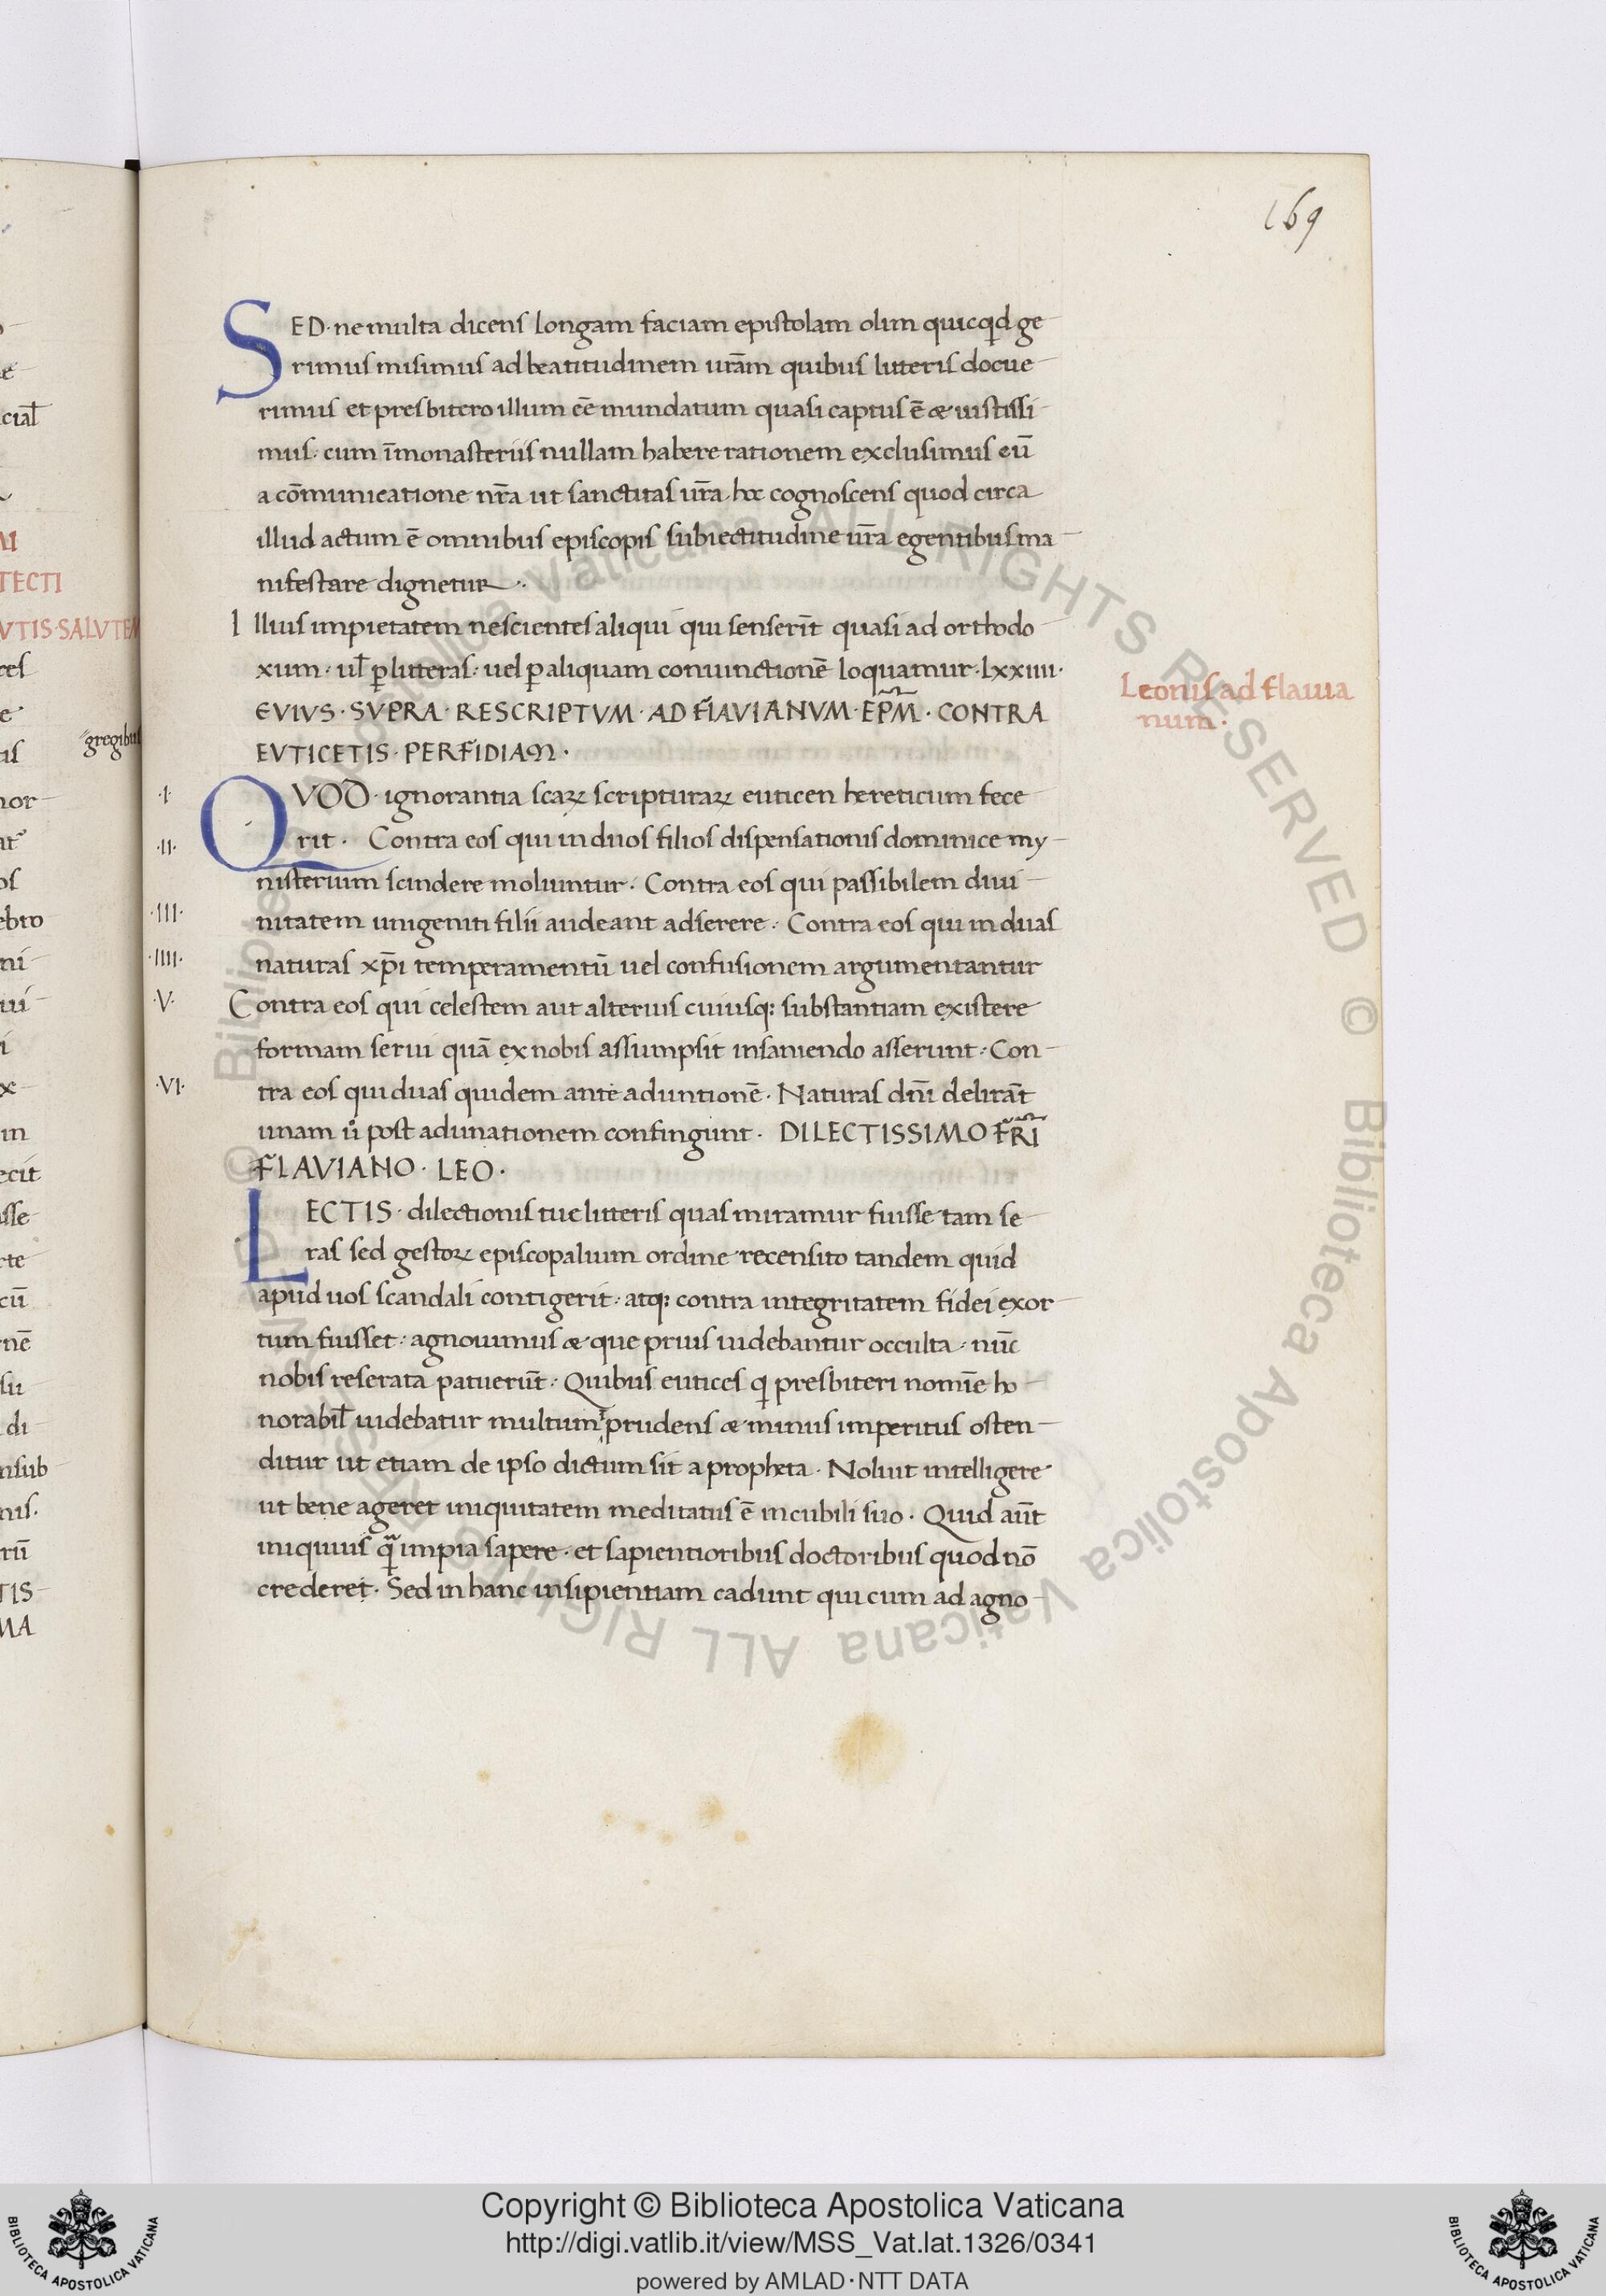 169
SED · ne multa dicens longam faciam epistolam olim quicqd ge
rimus misimus ad beatitudinem ur̄am quibus litteris docue
rimus et presbitero illum eē mundatum quasi captus ē & iustissi
mus · cum ī monasteriis nullam habere rationem exclusimus eū
a cōmunicatione nr̄a ut sanctitas ur̄a hoc cognoscens quod circa
illud actum ē omnibus episcopis subiectitudine ur̄a egentibus ma
nifestare dignetur ·
Illius impietatem nescientes aliqui qui senserīt quasi ad orthodo
xum · ul̄ ꝑ litteras · uel ꝑ aliquam coniunctionē loquamur · lxxiiii ·
Leonis ad flauia
num ·
EVIVS · SVPRA · RESCRIPTVM · AD FlAVIANVM · EP̄M · CONTRA
EVTICETIS · PERFIDIAM ·
·I· QVOD · ignorantia scaꝝ scripturaꝝ euticen hereticum fece
·II· rit · Contra eos qui in duos filios dispensationis dominice my
nisterium scindere moliuntur · Contra eos qui passibilem diui
·III· nitatem unigeniti filii audeant adserere · Contra eos qui in duas
·IIII· naturas xp̄i temperamentū uel confusionem argumentantur
·V· Contra eos qui celestem aut alterius cuiusq; substantiam existere
formam serui quā ex nobis assumpsit insaniendo asserunt · Con
·VI· tra eos qui duas quidem ante aduntionē · Naturas dn̄i delirāt
unam ū post adunationem confingunt · DILECTISSIMO FR̄I
FLAVIANO · LEO ·
LECTIS · dilectionis tue litteris quas miramur fuisse tam se
ras sed gestoꝝ episcopalium ordine recensito tandem quid
apud uos scandali contigerit · atq; contra integritatem fidei exor
tum fuisset · agnouimus & que prius uidebantur occulta · nūc
nobis reserata patuerūt · Quibus eutices q presbiteri nomīe ho
norabil̄ uidebatur multum prudens & minus imperitus osten
ditur ut etiam de ipso dictum sit a propheta · Noluit intelligere
ut bene ageret iniquitatem meditatus ē in cubili suo · Quid aūt
iniquius q̄ impia sapere · et sapientioribus doctoribus quod nō
crederet · Sed in hanc insipientiam cadunt qui cum ad agno
gregibus
Copyright © Biblioteca Apostolica Vaticana
http://digi.vatlib.it/view/MSS_Vat.lat.1326/0341
powered by AMLAD · NTT DATA